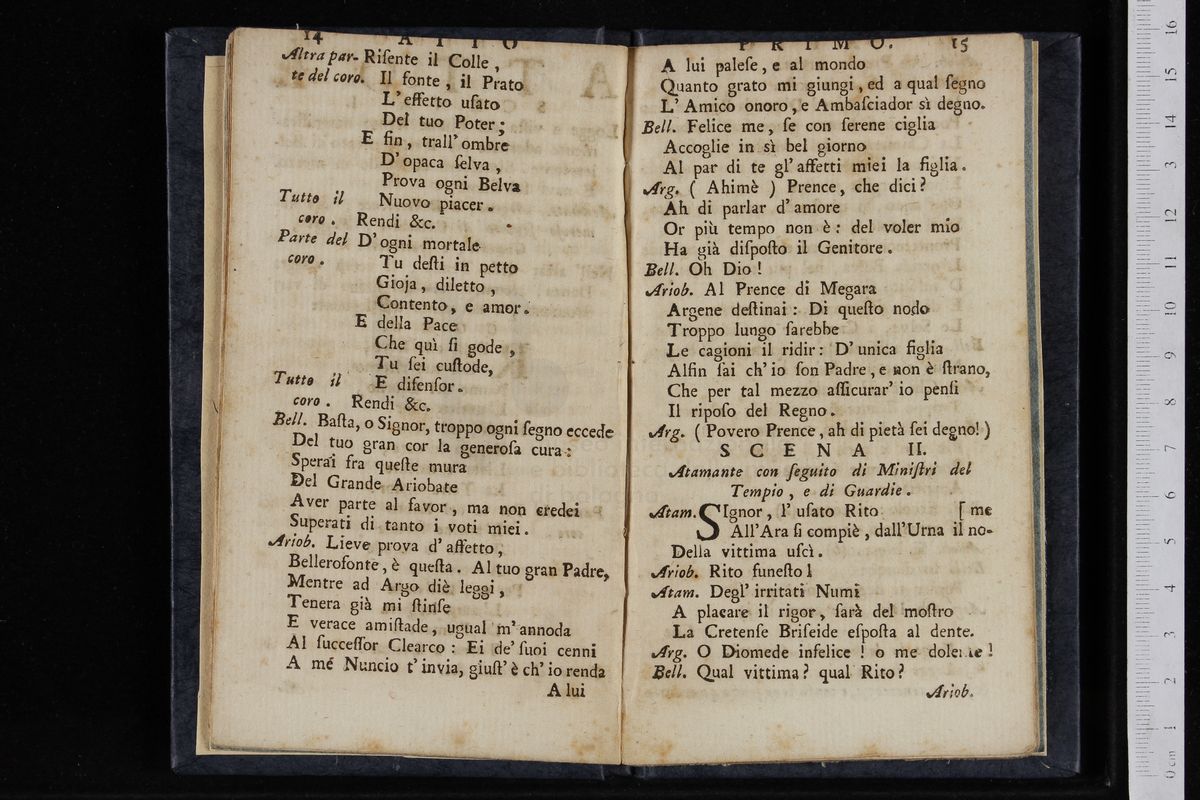 14 ATTO
Altra par- Risente il Colle,
te del coro. Il fonte, il Prato
L' effetto usato
Del tuo Poter;
E fin, trall' ombre
D' opaca selva,
Prova ogni Belva
Tutto il Nuovo piacer.
coro. Rendi &c.
Parte del D' ogni mortale
coro. Tu desti in petto
Gioja, diletto,
Contento, e amor.
E della Pace
Che quì si gode,
Tu sei custode,
Tutto il E difensor.
coro. Rendi &c.
Bell. Basta, o Signor, troppo ogni segno eccede
Del tuo gran cor la generosa cura:
Sperai fra queste mura
Del Grande Ariobate
Aver parte al favor, ma non credei
Superati di tanto i voti miei.
Ariob. Lieve prova d' affetto,
Bellerofonte, è questa. Al tuo gran Padre,
Mentre ad Argo diè leggi,
Tenera già mi stinse
E verace amistade, ugual m' annoda
Al successor Clearco: Ei de' suoi cenni
A mé Nuncio t' invia, giust' è ch' io renda
A lui
PRIMO. 15
A lui palese, e al mondo
Quanto grato mi giungi, ed a qual segno
L' Amico onoro, e Ambasciador sì degno.
Bell. Felice me, se con serene ciglia
Accoglie in sì bel giorno
Al par di te gl' affetti miei la figlia.
Arg. ( Ahimè ) Prence, che dici?
Ah di parlar d' amore
Or più tempo non è: del voler mio
Ha già disposto il Genitore.
Bell. Oh Dio!
Ariob. Al Prence di Megara
Argene destinai: Di questo nodo
Troppo lungo sarebbe
Le cagioni il ridir: D' unica figlia
Alfin sai ch' io son Padre, e non è strano,
Che per tal mezzo assicurar' io pensi
Il riposo del Regno.
Arg. ( Povero Prence, ah di pietà sei degno! )
SCENA II.
Atamante con seguito di Ministri del
Tempio, e di Guardie.
Atam. SIgnor, l' usato Rito [ me
All' Ara si compiè, dall' Urna il no-
Della vittima uscì.
Ariob. Rito funesto!
Atam. Degl' irritati Numi
A placare il rigor, sarà del mostro
La Cretense Briseide esposta al dente.
Arg. O Diomede infelice! o me dolente!
Bell. Qual vittima? qual Rito?
Ariob.